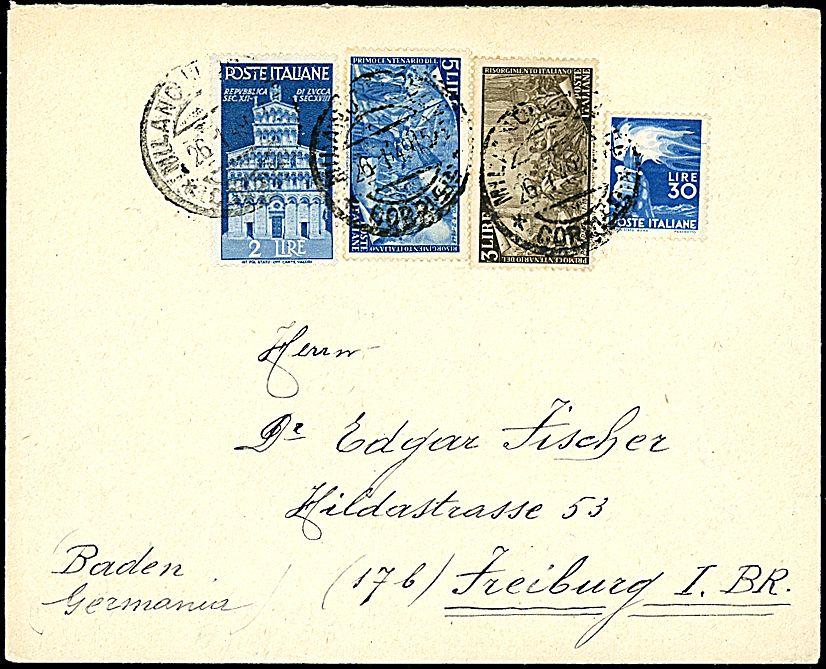 POSTE ITALIANE
REPVBBLICA DI LVCCA
SEC. XII - SEC. XVIII
2 LIRE
IST. POL. STATO OFF. CARTE VALORI
PRIMO CENTENARIO DEL
5 LIRE
RISORGIMENTO ITALIANO
POSTE
ITALIANE
RISORGIMENTO ITALIANO
POSTE
ITALIANE
3 LIRE
PRIMO CENTENARIO DEL
LIRE
30
POSTE ITALIANE
MILANO
26.1.49
CORR
MILANO
26.1.49
CORR
Herrn
Dr Edgar Fischer
Hildastrasse 53
(17b) Freiburg I. BR.
(Baden
Germania)